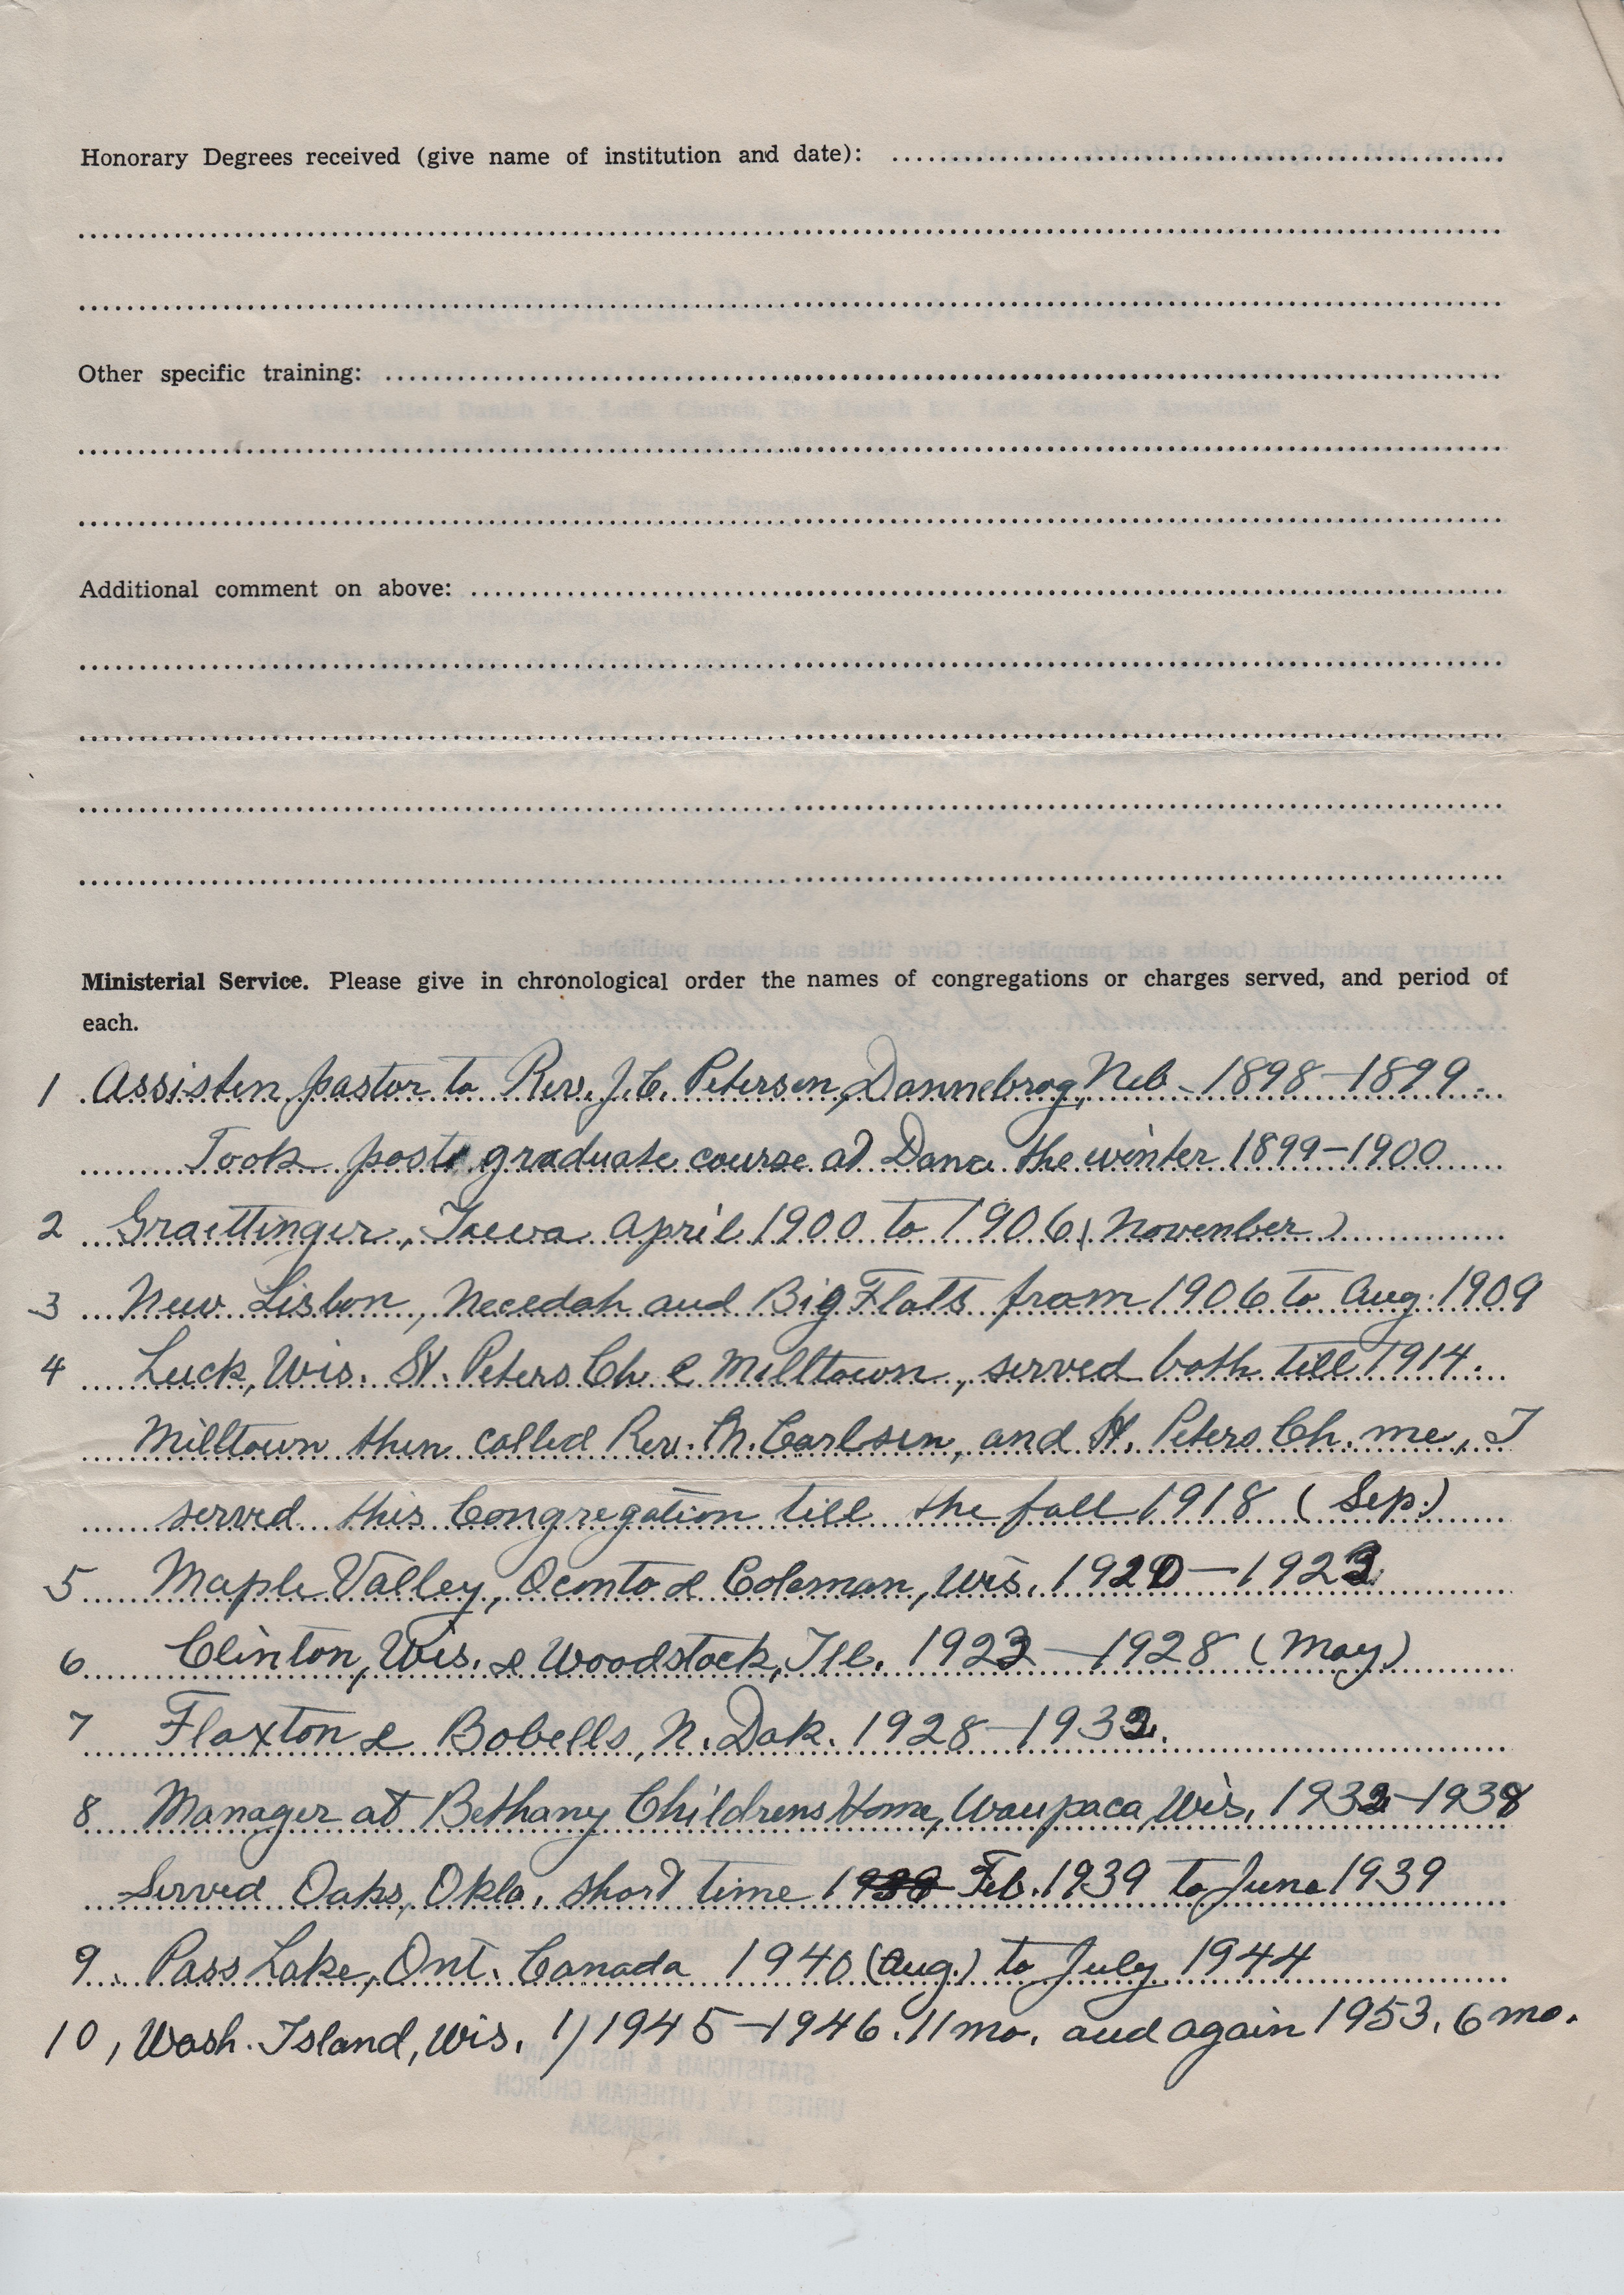 Honorary Degrees received (give name of institution and date):
Other specific training:
Additional comment on above:
Ministerial Service. Please give in chronological order the names of congregations or charges served, and period of
each.
1 Assisten pastor to Rev. J.C. Petersen, Dannebrog, Neb. 1898-1899.
Took post graduate course at Dana the winter 1899-1900
2 Graettinger, Iowa April 1900 to 1906 (November)
3 New Lisbon, Necedah and Big Flats from 1906 to Aug. 1909
4 Luck, Wis. St. Peters Ch & Milltown, served both till 1914.
Milltown then called Rev. M. Carlsen, and St. Peters Ch. me, I
served this Congregation till the fall 1918 (Sep.)
5 Maple Valley, Oconto & Coleman, Wis. 1920-1923
6 Clinton, Wis. & Woodstock, Ill. 1923-1928 (May)
7 Flaxton & Bobells, N. Dak. 1928-1932.
8 Manager at Bethany Childrens Home, Waupaca, Wis. 1932-1938
Served Oaks, Okla. short time Feb. 1939 to June 1939
9. Pass Lake, Ont. Canada 1940 (Aug.) to July 1944
10, Wash. Island, Wis. 1) 1945-1946. 11 mo. and again 1953. 6 mo.
STATISTICIAN & HISTORIAN
UNITED EV. LUTHERAN CHURCH
BLAIR, NEBRASKA